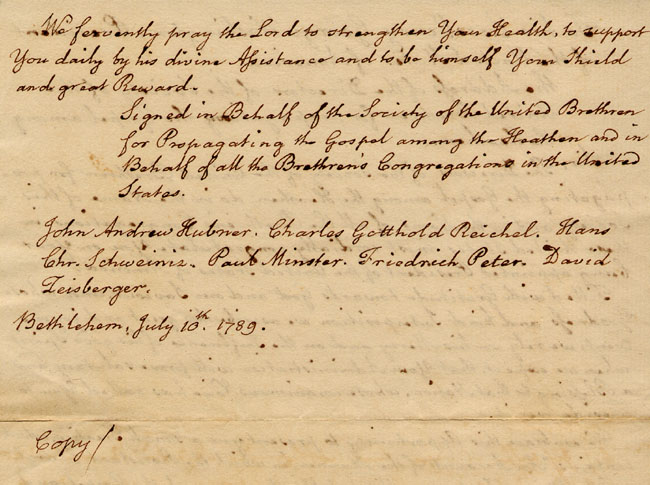 We fervently pray the Lord to strengthen Your Health, to support
You daily by his divine Assistance and to be himself Your Shield
and great Reward.
Signed in Behalf of the Society of the United Brethren
for Propagating the Gospel among the Heathen and in
Behalf of all the Brethren's Congregations in the United
States.
John Andrew Hubner. Charles Gotthold Reichel. Hans
Chr. Schweiniz. Paul Minster. Friedrich Peter. David
Zeisberger.
Bethlehem, July 10th. 1789.
Copy/